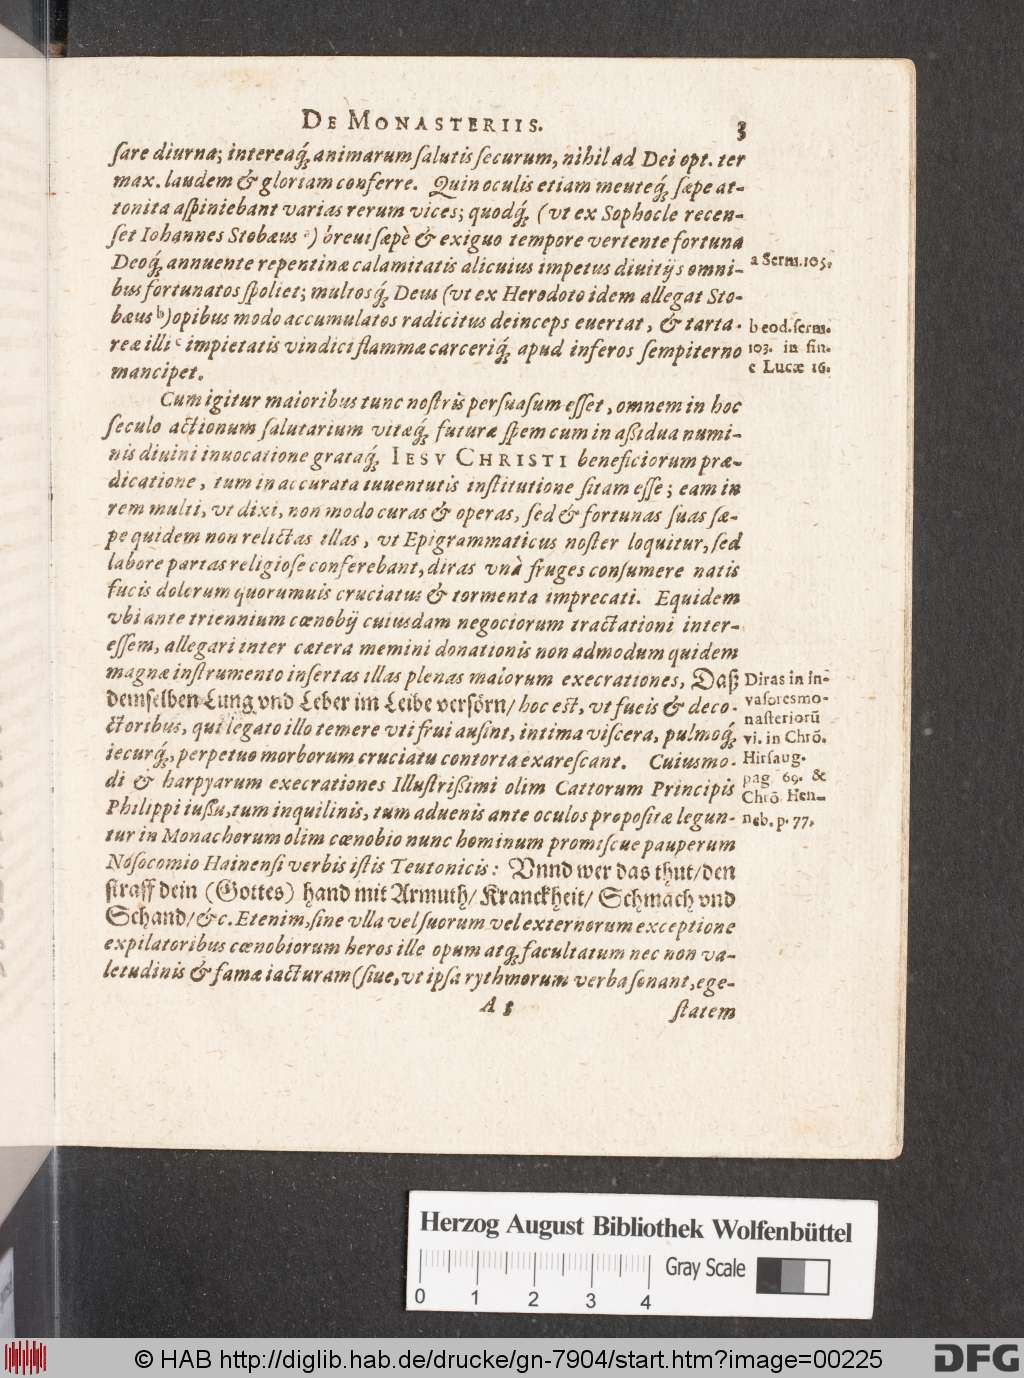 DE MONASTERIIS. 3
ſare diurna; intereaq́ȝ animarum ſalutis ſecurum, nihil ad Dei opt. ter
max. laudem & gloriam conferre. Quin oculis etiam menteq́ȝ ſæpe at-
tonita aſpiniebant varias rerum vices; quodq́ȝ (vt ex Sophocle recen-
ſet Iohannes Stobæus ᵃ) breui ſæpè & exiguo tempore vertente fortuna
Deoq́ȝ annuente repentinæ calamitatis alicuius impetus diuitijs omni-
bus fortunatos ſpoliet; multosq́ȝ Deus (vt ex Herodoto idem allegat Sto-
bæus ᵇ) opibus modo accumulatos radicitus deinceps euertat, & tarta-
reæ illi ᶜ impietatis vindici flammæ carceriq́ȝ apud inferos ſempiterno
mancipet.
a Serm. 103.
b eod. ſerm.
103. in fin.
c Lucæ 16.
Cum igitur maioribus tunc noſtris perſuaſum eſſet, omnem in hoc
ſeculo actionum ſalutarium vitæq́ȝ futuræ ſpem cum in aßidua numi-
nis diuini inuocatione grataq́ȝ IESV CHRISTI beneficiorum præ-
dicatione, tum in accurata iuuentutis inſtitutione ſitam eſſe; eam in
rem multi, vt dixi, non modo curas & operas, ſed & fortunas ſuas ſæ-
pe quidem non relictas illas, vt Epigrammaticus noſter loquitur, ſed
labore partas religioſe conferebant, diras vnà fruges conſumere natis
fucis dolorum quorumuis cruciatus & tormenta imprecati. Equidem
vbi ante triennium cœnobij cuiusdam negociorum tractationi inter-
eſſem, allegari inter cætera memini donationis non admodum quidem
magnæ inſtrumento inſertas illas plenas maiorum execrationes, Daß
demſelben Lung vnd Leber im Leibe verſörn/ hoc eſt, vt fucis & deco-
ctoribus, qui legato illo temere vti frui auſint, intima viſcera, pulmoq́ȝ
iecurq́ȝ, perpetuo morborum cruciatu contorta exareſcant. Cuiusmo-
di & harpyarum execrationes Illuſtrißimi olim Cattorum Principis
Philippi iuſſu, tum inquilinis, tum aduenis ante oculos propoſitæ legun-
tur in Monachorum olim cœnobio nunc hominum promiſcue pauperum
Noſocomio Hainenſi verbis iſtis Teutonicis: Vnnd wer das thut/ den
ſtraff dein (Gottes) hand mit Armuth/ Kranckheit/ Schmach vnd
Schand/ &c. Etenim, ſine vlla vel ſuorum vel externorum exceptione
expilatoribus cœnobiorum heros ille opum atqȝ facultatum nec non va-
letudinis & famæ iacturam (ſiue, vt ipſa rythmorum verba ſonant, ege-
Diras in in-
vaſores mo-
naſteriorū
vi. in Chrō.
Hirſaug.
pag 69. &
Chrō. Hen-
neb. p. 77.
A 3 ſtatem
Herzog August Bibliothek Wolfenbüttel
Gray Scale
0 1 2 3 4
© HAB http://diglib.hab.de/drucke/gn-7904/start.htm?image=00225
DFG